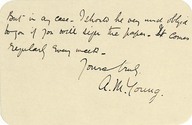 But in any case - I should be very much obliged
to you if you will sign the paper. It comes
regularly every week.
Yours truly,
A. M. Young.